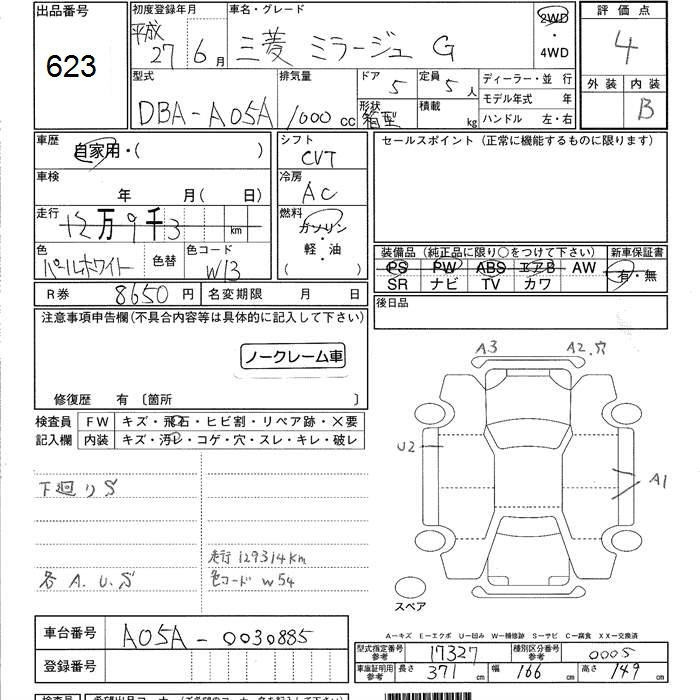 出品番号
623
初度登録年月
平成 27 6 月
車名・グレード
三菱 ミラージュ G
2WD
・
4WD
評価点
4
外装 内装
B
型式
DBA-A05A
排気量
1000 cc
ドア
5
形状
箱型
定員
5 人
積載
kg
ディーラー・並行
モデル年式 年
ハンドル 左・右
車歴
自家用・( )
車検
年 月( 日)
走行
12万9千3 km
色
パールホワイト
色替
色コード
W13
シフト
CVT
冷房
AC
燃料
ガソリン
・
軽・油
( )
セールスポイント(正常に機能するものに限ります)
装備品(純正品に限り○をつけて下さい)
PS PW ABS エアB AW
SR ナビ TV カワ
新車保証書
有・無
R券 8650 円
名変期限 月 日
後日品
注意事項申告欄(不具合内容等は具体的に記入して下さい)
ノークレーム車
修復歴 有 〔箇所 〕
検査員
記入欄
FW キズ・飛石・ヒビ割・リペア跡・×要
内装 キズ・汚レ・コゲ・穴・スレ・キレ・破レ
下廻りS
走行129314km
各A.U.S
色コード W54
A3
A2.穴
U2
A1
スペア
A-キズ E-エクボ U-凹み W-補修跡 S-サビ C-腐食 XX-交換済
車台番号
A05A-0030885
登録番号
型式指定番号
参考
17327
種別区分番号
参考
0005
車庫証明用
参考
長さ 371 cm
幅 166 cm
高さ 149 cm